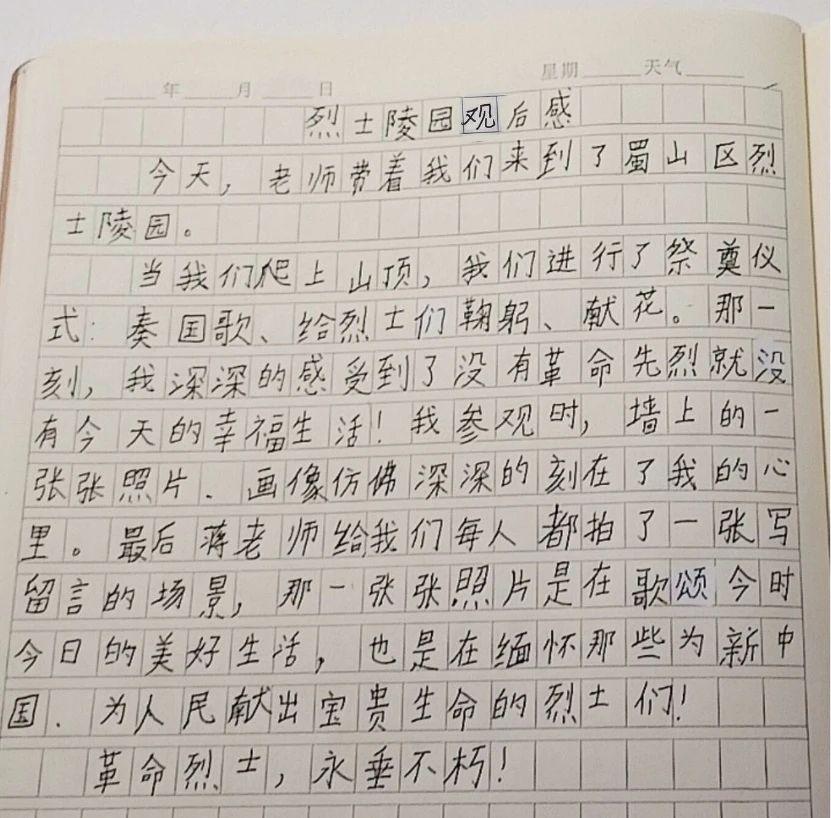 年 月 日 星期 天气
烈士陵园观后感
今天，老师带着我们来到了蜀山区烈
士陵园。
当我们爬上山顶，我们进行了祭奠仪
式：奏国歌、给烈士们鞠躬、献花。那一
刻，我深深的感受到了没有革命先烈就没
有今天的幸福生活！我参观时，墙上的一
张张照片、画像仿佛深深的刻在了我的心
里。最后蒋老师给我们每人都拍了一张写
留言的场景，那一张张照片是在歌颂今时
今日的美好生活，也是在缅怀那些为新中
国、为人民献出宝贵生命的烈士们！
革命烈士，永垂不朽！